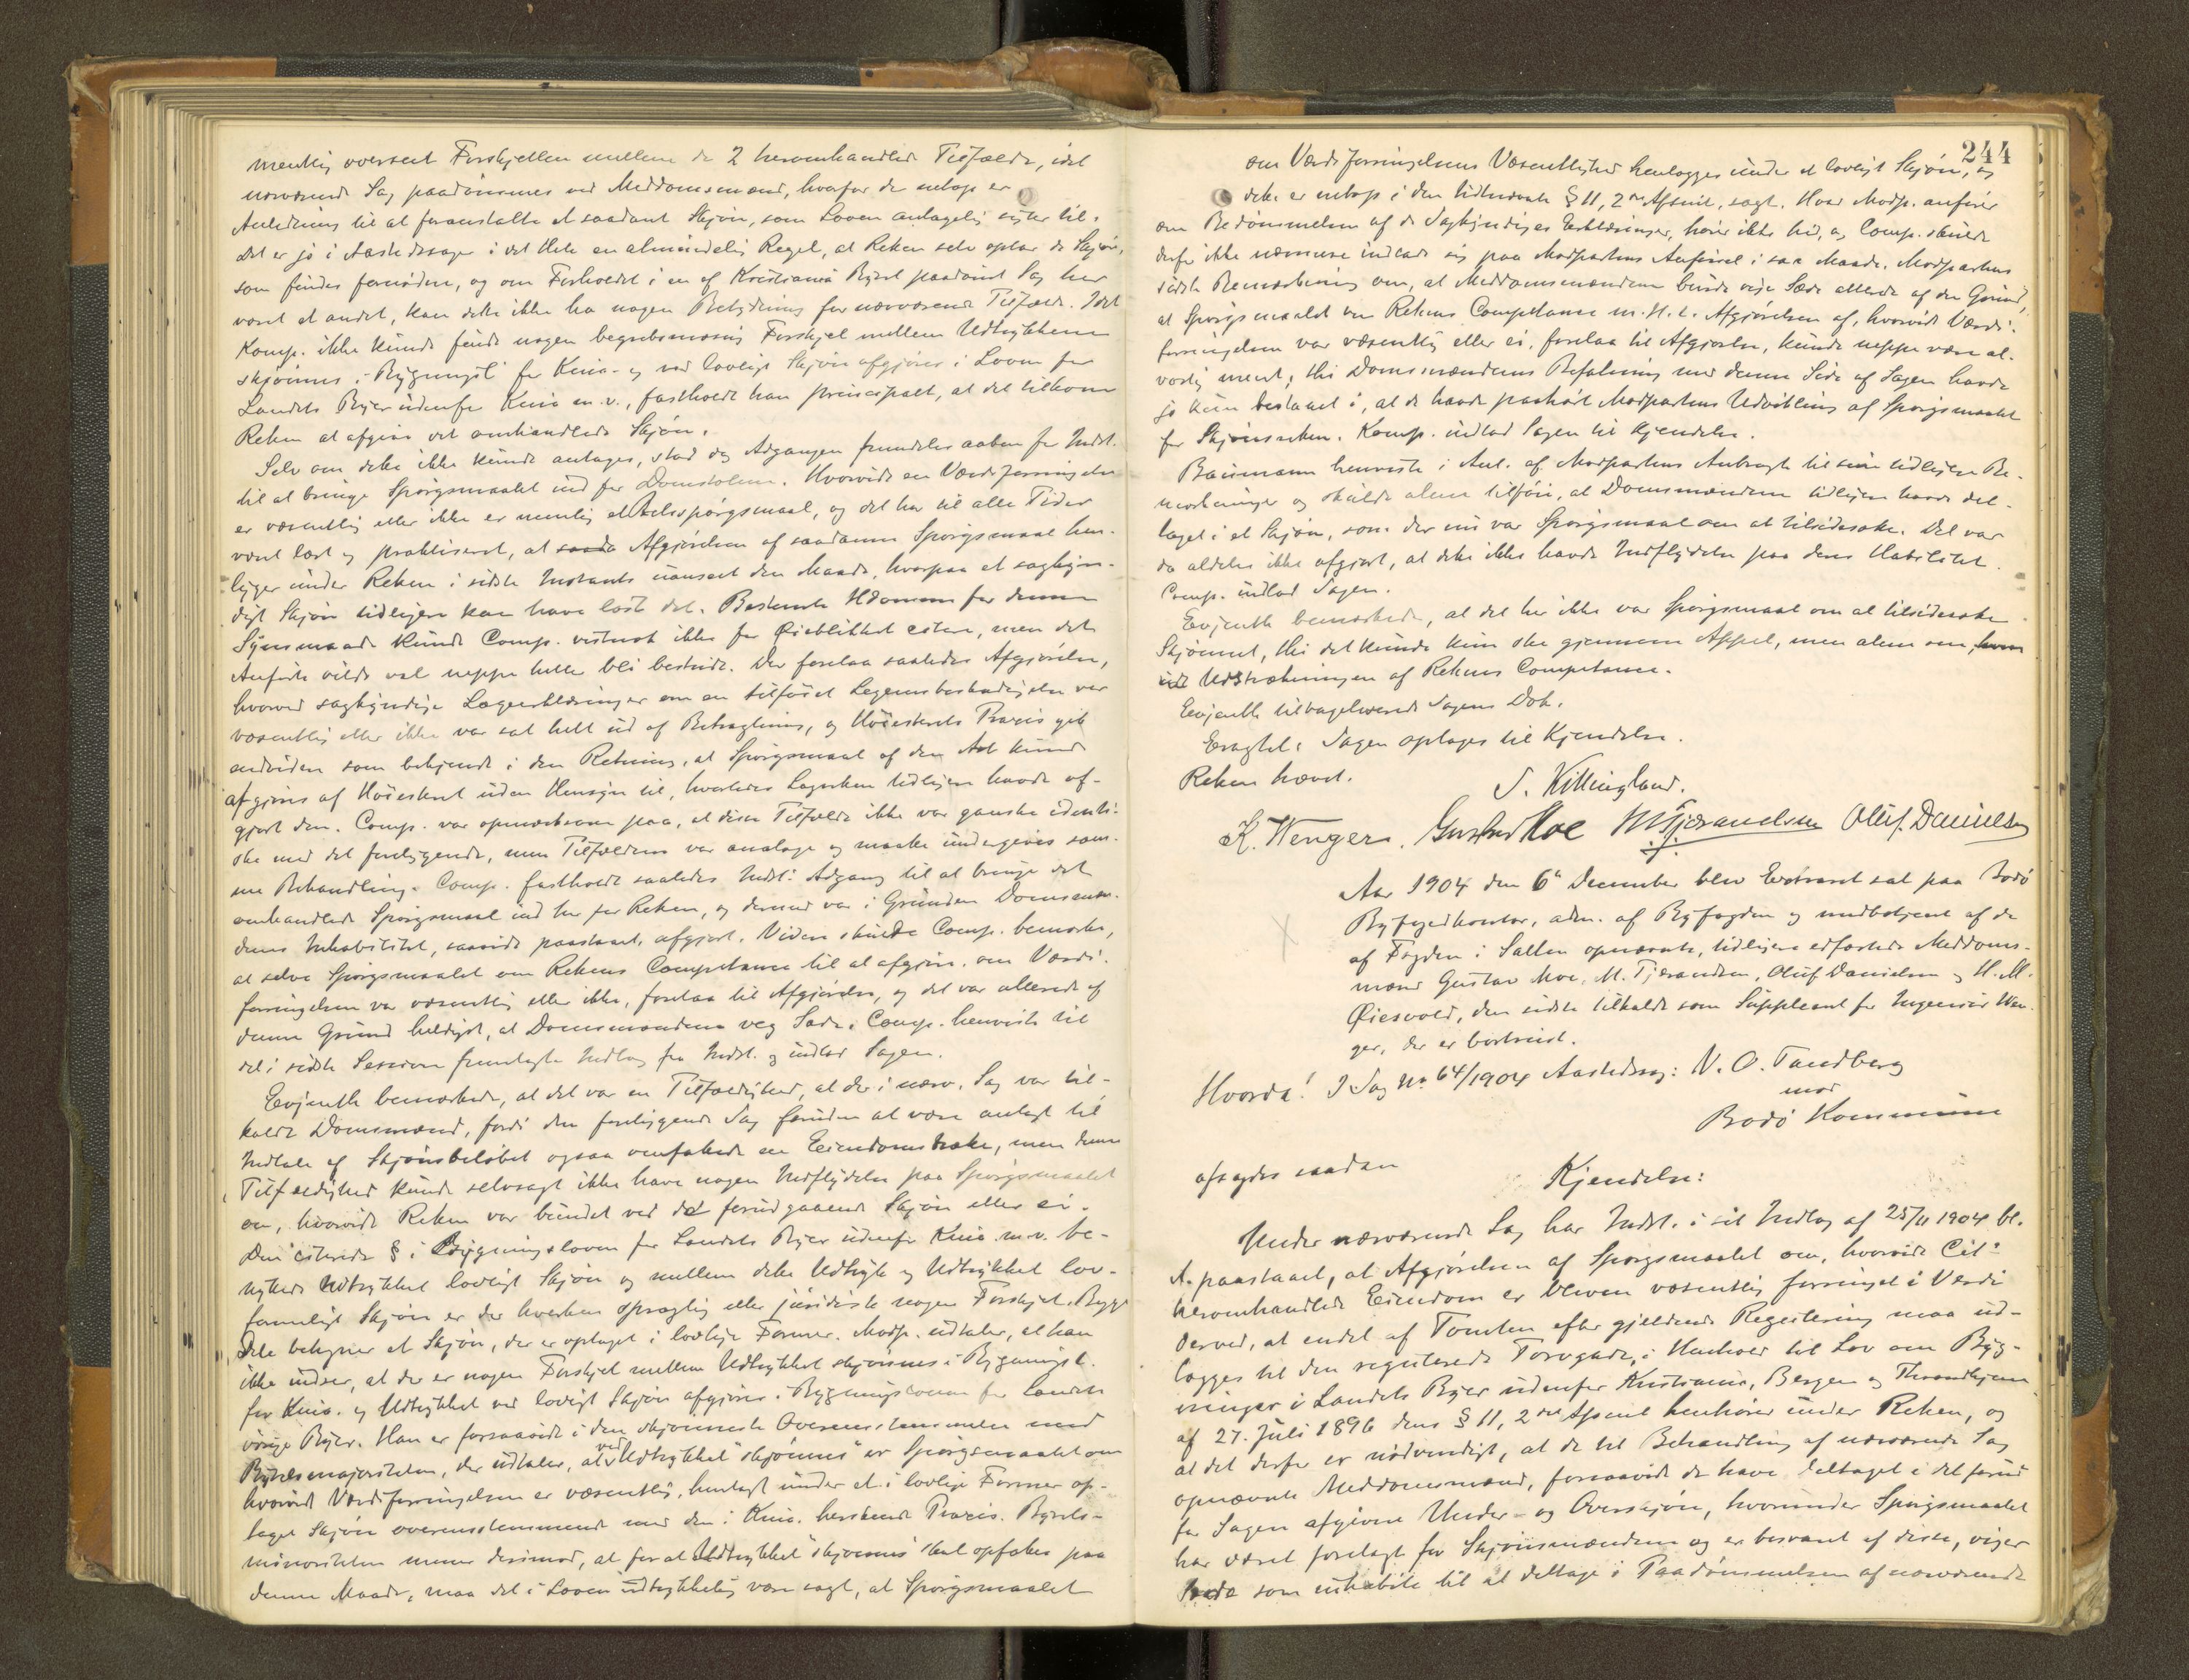 mentlig overseet Forskjellen mellem de 2 heromhandlede Tilfælde, idet
nærværende Sag paadømmes ved Meddomsmænd, hvorfor der netop er
Anledning til at foranstalte et saadant Skjøn, som Loven antagelig sigter til.
Det er jo i Aastedssager i det Hele en almindelig Regel, at Retten selv optar de Skjøn,
som findes fornødne, og om Forholdet i en af Kristiania Byret paadømt Sag har
været et andet, kan dette ikke ha nogen Betydning for nærværende Tilfælde. Idet
Komp. ikke kunde finde nogen begrebsmæssig Forskjel mellem Udtrykkene
skjønnes i Bygningsl. for Kria. og ved lovligt Skjøn afgjøres i Loven for
Landets Byer udenfor Kria m.v., fastholdt han principalt, at det tilkom
Retten at afgive det omhandlede Skjøn.
Selv om dette ikke kunde antages, stod dog Adgangen fremdeles aaben for Indst.
til at bringe Spørgsmaalet ind for Domstolene. Hvorvidt en Værdiforringelse
er væsentlig eller ikke er nemlig et Retsspørgsmaal, og det har til alle Tider
været lært og praktiseret, at saada Afgjørelsen af saadanne Spørgsmaal hen-
ligger under Retten i sidste Instants uanseet den Maade, hvorpaa et sagkyn-
digt Skjøn tidligere kan have løst det. Bestemte Hdomme for denne
Synsmaade kunde Comp. vistnok ikke for Øieblikket citere, men det
Anførte vilde vel neppe heller bli bestridt. Der forelaa saaledes Afgjørelser,
hvorved sagkyndige Lægeerklæringer om en tilføiet Legemsbeskadigelse var
væsentlig eller ikke var sat helt ud af Betragtning, og Høiesterets Praxis gik
endvidere som bekjendt i den Retning, at Spørgsmaal af den Art kunde
afgjøres af Høiesteret uden Hensyn til, hvorledes Lagretten tidligere havde af-
gjort den. Comp. var opmærksom paa, at disse Tilfælde ikke var ganske identi-
ske med det foreliggende, men Tilfældene var analoge og maatte undergives sam-
me Behandling. Comp. fastholdt saaledes Indst.s Adgang til at bringe det
omhandlede Spørgsmaal ind her for Retten, og dermed var i Grunden Domsmæn-
denes Inhabilitet, saavidt paastaaet, afgjort. Videre skulde Comp. bemærke,
at selve Spørgsmaalet om Rettens Competance til at afgjøre, om Værdi-
forringelsen var væsentlig eller ikke, forelaa til Afgjørelse, og det var allerede af
denne Grund heldigst, at Domsmændene veg Sæde. Comp. henviste til
det i sidste Session fremlagte Indlæg fra Indst. og indlod Sagen.
Evjenth bemærkede, at det var en Tilfældighed, at der i nærv. Sag var til-
kaldt Domsmænd, fordi den foreliggende Sag foruden at være anlagt til
Indtale af Skjønsbeløbet ogsaa omfattede en Eiendomstrætte, men denne
Tilfældighed kunde selvsagt ikke have nogen Indflydelse paa Spørgsmaalet
om, hvorvidt Retten var bundet ved det forudgaaende Skjøn eller ei.
Den citerede § i Bygningsloven for Landets Byer udenfor Kria m.v. be-
nyttede Udtrykket lovligt Skjøn og mellem dette Udtryk og Udtrykket lov-
formeligt Skjøn er der hverken sproglig eller juridisk nogen Forskjel. Begge
Dele betegner et Skjøn, der er optaget i lovlige Former. Modp. udtaler, at han
ikke indser, at der er nogen Forskjel mellem Udtrykket skjønnes i Bygningsl.
for Kria. og Udtrykket ved lovligt Skjøn afgjøres i Bygningsloven for Landets
øvrige Byer. Han er forsaavidt i den skjønneste Overensstemmelse med
Byretsmajoriteten, der udtaler, at ved Udtrykket "skjønnes" er Spørgsmaalet om
hvorvidt Værdiforringelsen er væsentlig, henlagt under et i lovlige Former op-
taget Skjøn overensstemmende med den i Kria. herskende Praxis. Byrets-
minoriteten mener derimod, at for at Udtrykket "skjønnes" skal opfattes paa
denne Maade, maa det i Loven udtrykkelig være sagt, at Spørgsmaalet
244
om Værdiforringelsens Væsentlighed henlægges under et lovligt Skjøn, og
dette er netop i den tidtnævnte § 11, 2det Afsnit, sagt. Hvad Modp. anfører
om Bedømmelsen af de Sagkyndiges Erklæringer, hører ikke hid, og Comp. skulde
derfor ikke nærmere indlade sig paa Modpartens Anførsel i saa Maade. Modpartens
sidste Bemærkning om, at Meddomsmændene burde vige Sæde allerede af den Grund,
at Spørgsmaalet om Rettens Competance m. H. t. Afgjørelsen af, hvorvidt Værdi-
forringelsen var væsentlig eller ei, forelaa til Afgjørelse, kunde neppe være al-
vorlig ment; thi Domsmændenes Befatning med denne Side af Sagen havde
jo kun bestaaet i, at de havde paahørt Modpartens Udvikling af Spørgsmaalet
for Skjønsretten. Komp. indlod Sagen til Kjendelse.
Baumann henviste i Anl. af Modpartens Anbragte til sine tidligere Be-
mærkninger og skulde alene tilføie, at Domsmændene tidligere havde del-
taget i et Skjøn, som der nu var Spørgsmaal om at tilsidesætte. Det var
da aldeles ikke afgjort, at dette ikke havde Indflydelse paa deres Habilitet.
Comp. indlod Sagen.
Evjenth bemærkede, at det her ikke var Spørgsmaal om at tilsidesætte
Skjønnet, thi det kunde kun ske gjennem Appel, men alene om, hvor
vidt Udstrækningen af Rettens Competance.
Evjenth tilbageleverede Sagens Dok.
Eragtet: Sagen optages til Kjendelse.
Retten hævet.
S. Killingland.
K. Wenger. Gustav Moe M Tjærandsen Oluf Danielsen
Aar 1904 den 6te December blev Extraret sat paa Bodø
Byfogedkontor, adm. af Byfogden og medbetjent af de
af Fogden i Salten opnævnte, tidligere edfæstede Meddoms-
mænd Gustav Moe, M. Tjærandsen, Oluf Danielsen og H. M.
Øiesvold, den sidste tilkaldt som Suppleant for Ingeniør Wen-
ger, der er bortreist.
Hvorda! I Sag No 64/1904 Aastedssag: N. O. Tandberg
mod
Bodø Kommune
afsagdes saadan
Kjendelse:
Under nærværende Sag har Indst. i sit Indlæg af 25/11 1904 bl.
A. paastaaet, at Afgjørelsen af Spørgsmaalet om, hvorvidt Cit:s
heromhandlede Eiendom er bleven væsentlig forringet i Værdi
derved, at endel af Tomten efter gjeldende Regulering maa ud-
lægges til den regulerede Torvgade, i Henhold til Lov om Byg-
ninger i Landets Byer udenfor Kristiania, Bergen og Throndhjem
af 27. Juli 1896 dens § 11, 2det Afsnit henhører under Retten, og
at det derfor er nødvendigt, at de til Behandling af nærværende Sag
opnævnte Meddomsmænd, forsaavidt de have deltaget i det forud
for Sagen afgivne Under- og Overskjøn, hvorunder Spørgsmaalet
har været forelagt for Skjønsmændene og er besvaret af disse, viger
Sæde som inhabile til at deltage i Paadømmelsen af nærværende